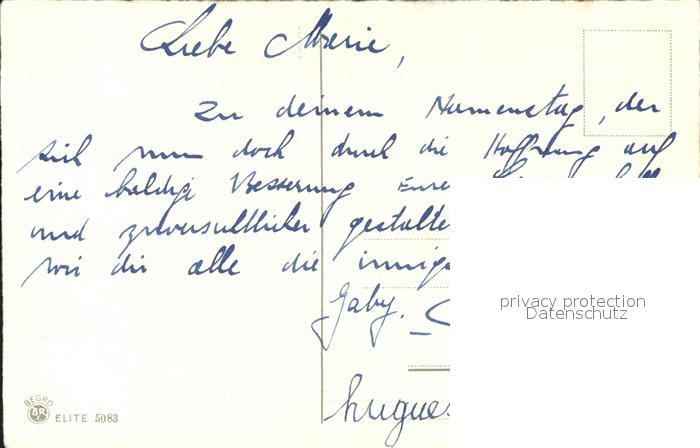 Liebe Marie,
Zu deinem Namenstag, der
sich nun doch durch die Hoffnung auf
eine baldige Besserung Eure
und zuversichtlicher gestalte
wir dir alle die innig
Gaby.
hugues
privacy protection
Datenschutz
BEGRO
BR
ELITE 5083